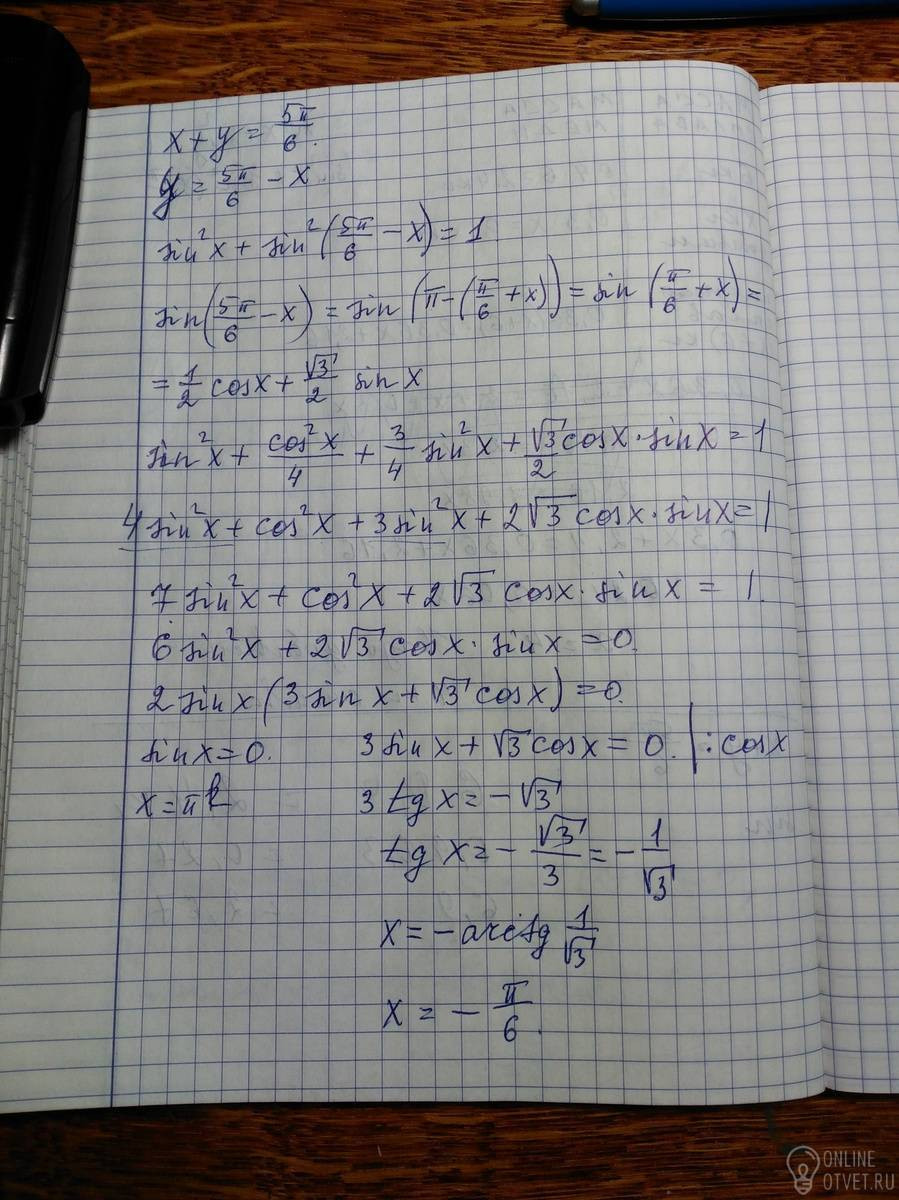 x + y = 5π/6.
y = 5π/6 - x
sin²x + sin²(5π/6 - x) = 1
sin(5π/6 - x) = sin(π - (π/6 + x)) = sin(π/6 + x) =
= 1/2 cosx + √3/2 sin x
sin²x + cos²x/4 + 3/4 sin²x + √3/2 cosx · sinx = 1
4 sin²x + cos²x + 3 sin²x + 2√3 cosx · sinx = 1
7 sin²x + cos²x + 2√3 cosx · sin x = 1.
6 sin²x + 2√3 cosx · sin x = 0.
2 sin x (3 sin x + √3 cosx) = 0.
sin x = 0. 3 sin x + √3 cosx = 0. | : cosx
x = πk 3 tg x = -√3
tg x = - √3/3 = - 1/√3
x = - arctg 1/√3
x = - π/6.
ONLINE
OTVET.RU